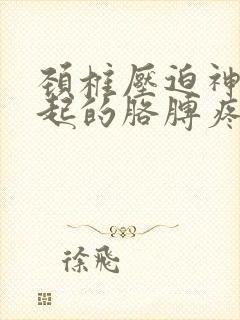 頸椎壓迫神
起的胳膊疼
徐飛